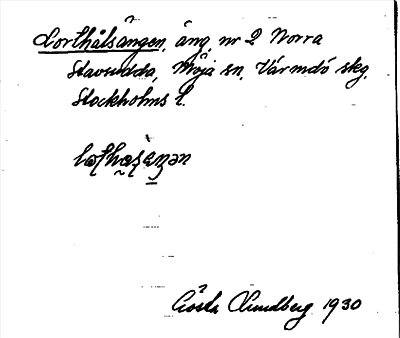 Lorthålsängen, äng, nr 2 Norra
Stavsudda, Möja sn. Värmdö skg.
Stockholms l.
Gösta Lundberg 1930